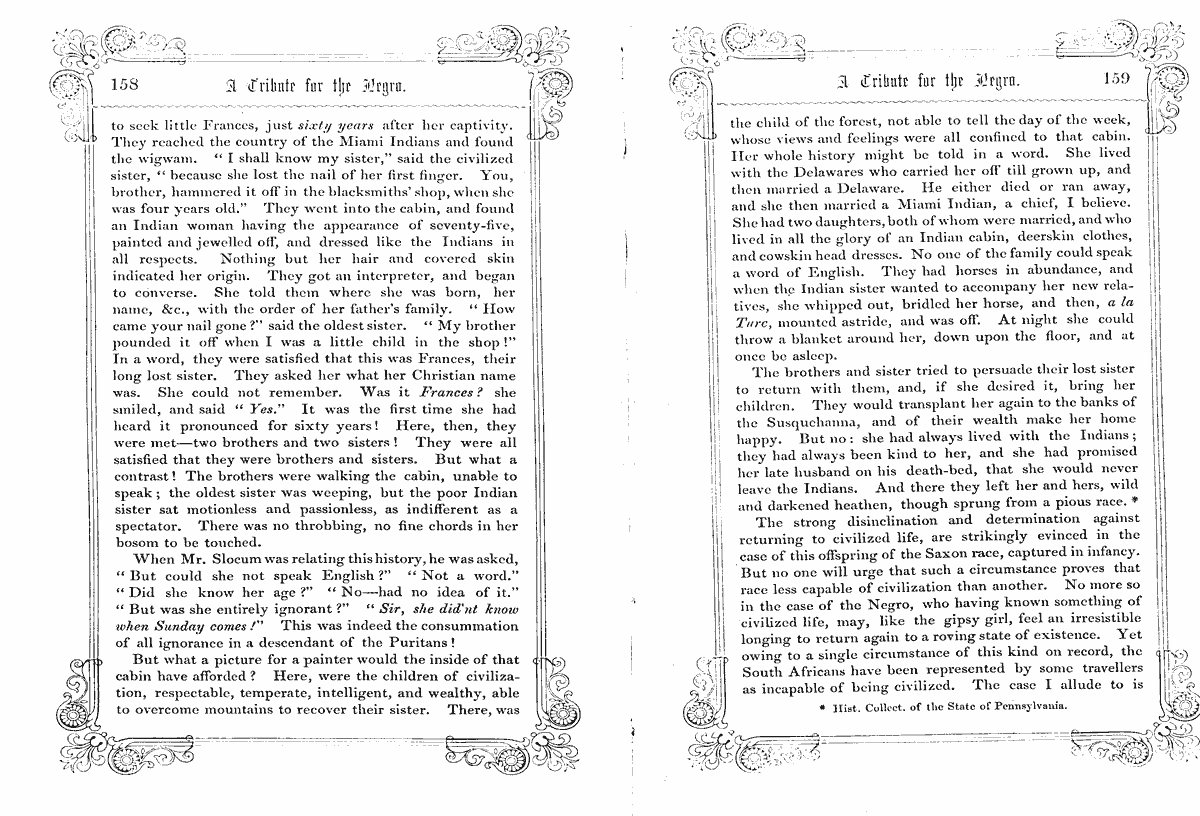 158 A Tribute for the Negro.
to seek little Frances, just sixty years after her captivity.
They reached the country of the Miami Indians and found
the wigwam. “ I shall know my sister,” said the civilized
sister, “ because she lost the nail of her first finger. You,
brother, hammered it off in the blacksmiths’ shop, when she
was four years old.” They went into the cabin, and found
an Indian woman having the appearance of seventy-five,
painted and jewelled off, and dressed like the Indians in
all respects. Nothing but her hair and covered skin
indicated her origin. They got an interpreter, and began
to converse. She told them where she was born, her
name, &c., with the order of her father’s family. “ How
came your nail gone ?” said the oldest sister. “ My brother
pounded it off when I was a little child in the shop !”
In a word, they were satisfied that this was Frances, their
long lost sister. They asked her what her Christian name
was. She could not remember. Was it Frances ? she
smiled, and said “ Yes.” It was the first time she had
heard it pronounced for sixty years ! Here, then, they
were met—two brothers and two sisters ! They were all
satisfied that they were brothers and sisters. But what a
contrast ! The brothers were walking the cabin, unable to
speak ; the oldest sister was weeping, but the poor Indian
sister sat motionless and passionless, as indifferent as a
spectator. There was no throbbing, no fine chords in her
bosom to be touched.
When Mr. Slocum was relating this history, he was asked,
“ But could she not speak English ?” “ Not a word.”
“ Did she know her age ?” “ No—had no idea of it.”
“ But was she entirely ignorant ?” “ Sir, she did'nt know
when Sunday comes !” This was indeed the consummation
of all ignorance in a descendant of the Puritans !
But what a picture for a painter would the inside of that
cabin have afforded ? Here, were the children of civiliza-
tion, respectable, temperate, intelligent, and wealthy, able
to overcome mountains to recover their sister. There, was
A Tribute for the Negro. 159
the child of the forest, not able to tell the day of the week,
whose views and feelings were all confined to that cabin.
Her whole history might be told in a word. She lived
with the Delawares who carried her off till grown up, and
then married a Delaware. He either died or ran away,
and she then married a Miami Indian, a chief, I believe.
She had two daughters, both of whom were married, and who
lived in all the glory of an Indian cabin, deerskin clothes,
and cowskin head dresses. No one of the family could speak
a word of English. They had horses in abundance, and
when the Indian sister wanted to accompany her new rela-
tives, she whipped out, bridled her horse, and then, a la
Turc, mounted astride, and was off. At night she could
throw a blanket around her, down upon the floor, and at
once be asleep.
The brothers and sister tried to persuade their lost sister
to return with them, and, if she desired it, bring her
children. They would transplant her again to the banks of
the Susquehanna, and of their wealth make her home
happy. But no : she had always lived with the Indians ;
they had always been kind to her, and she had promised
her late husband on his death-bed, that she would never
leave the Indians. And there they left her and hers, wild
and darkened heathen, though sprung from a pious race. *
The strong disinclination and determination against
returning to civilized life, are strikingly evinced in the
case of this offspring of the Saxon race, captured in infancy.
But no one will urge that such a circumstance proves that
race less capable of civilization than another. No more so
in the case of the Negro, who having known something of
civilized life, may, like the gipsy girl, feel an irresistible
longing to return again to a roving state of existence. Yet
owing to a single circumstance of this kind on record, the
South Africans have been represented by some travellers
as incapable of being civilized. The case I allude to is
* Hist. Collect. of the State of Pennsylvania.